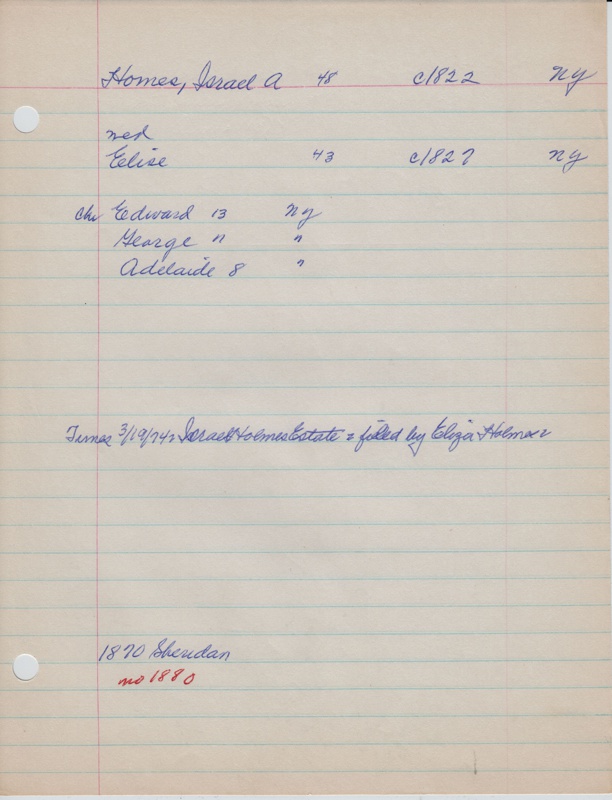 Homes, Israel A 48 c/822 NY
med
Eelise 43 c/827 NY
Chi Edward 13 NY
George 11 "
Adelaide 8 "
Times 3/19/74: Israel Holmes Estate = filed by Eliza Holmes=
1870 Sheridan
no 1880